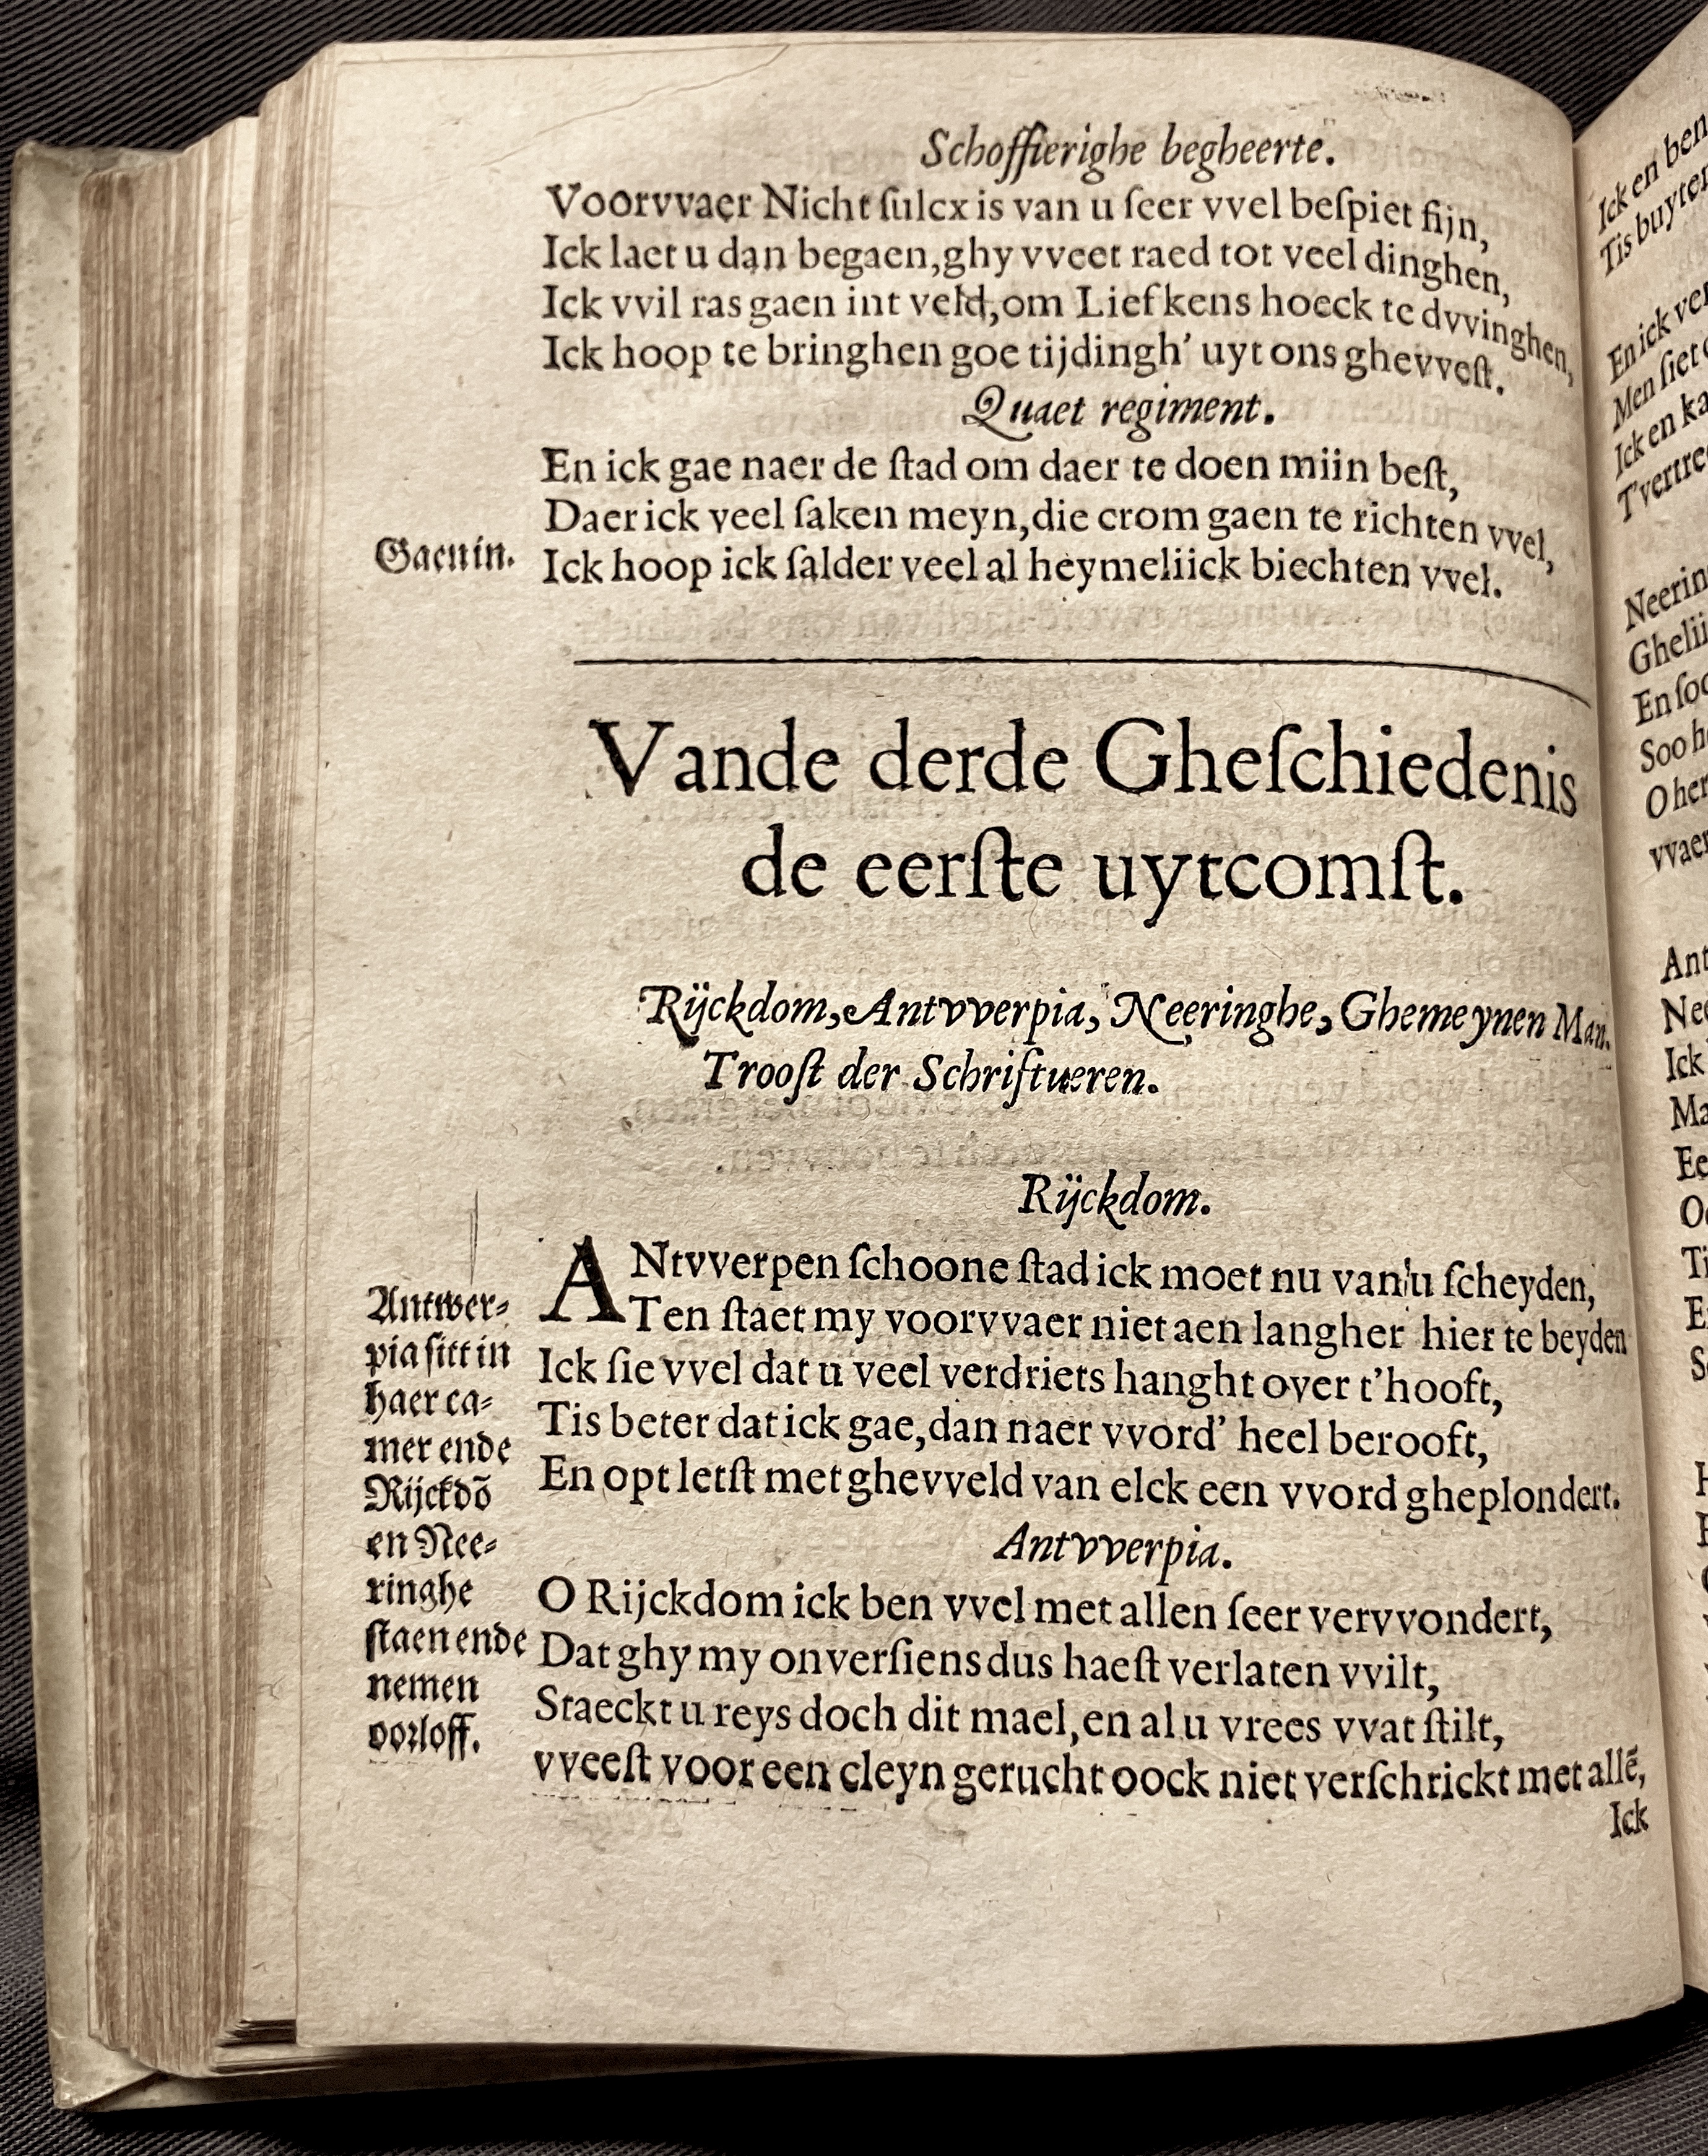 Schoffierighe begheerte.
Voorvvaer Nicht ſulcx is van u ſeer vvel beſpiet ſijn,
Ick laet u dan begaen, ghy vveet raed tot veel dinghen,
Ick vvil ras gaen int veld, om Liefkens hoeck te dvvinghen,
Ick hoop te bringhen goe tijdingh' uyt ons ghevveſt.
Quaet regiment.
En ick gae naer de ſtad om daer te doen miin beſt,
Daer ick veel ſaken meyn, die crom gaen te richten vvel,
Gaen in.
Ick hoop ick ſalder veel al heymeliick biechten vvel.
Vande derde Gheſchiedenis
de eerſte uytcomſt.
Rijckdom, Antvverpia, Neeringhe, Ghemeynen Man.
Trooſt der Schriftueren.
Rijckdom.
ANtvverpen ſchoone ſtad ick moet nu van u ſcheyden,
Ten ſtaet my voorvvaer niet aen langher hier te beyden
Ick ſie vvel dat u veel verdriets hanght over t'hooft,
Tis beter dat ick gae, dan naer vvord' heel berooft,
En opt letſt met ghevveld van elck een vvord gheplondert.
Antvverpia.
O Rijckdom ick ben vvel met allen ſeer vervvondert,
Dat ghy my onverſiens dus haeſt verlaten vvilt,
Staeckt u reys doch dit mael, en al u vrees vvat ſtilt,
vveeſt voor een cleyn gerucht oock niet verſchrickt met allẽ,
Ick
Antwer-
pia ſitt in
haer ca-
mer ende
Rijckdõ
en Nee-
ringhe
ſtaen ende
nemen
oorloff.
Ick en ben
Tis buyten
En ick ver
Men ſiet
Ick en ka
T'vertre
Neerin
Ghelii
En ſoo
Soo h
O her
vvaer
Ant
Nee
Ick
Ma
Ee